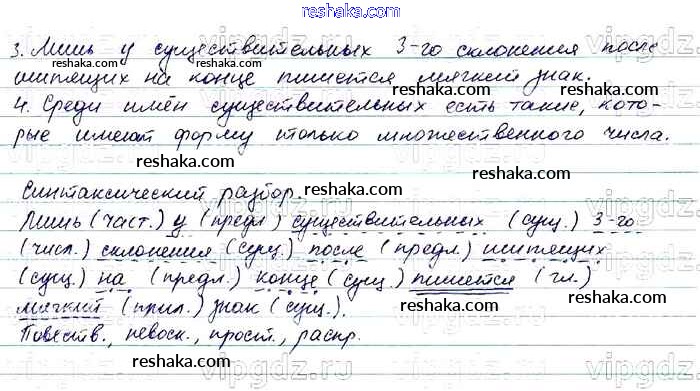 reshaka.com
3. Лишь у существительных 3-го склонения после
шипящих на конце пишется мягкий знак.
4. Среди имён существительных есть такие, кото-
reshaka.com
рые имеют форму только множественного числа.
reshaka.com reshaka.com
Синтаксический разбор.
reshaka.com
Лишь (част.) у (предл) существительных (сущ.) 3-го
(числ.) склонения (сущ.) после (предл.) шипящих
reshaka.com
(сущ.) на (предл.) конце (сущ.) пишется (гл.)
reshaka.com
мягкий (прил.) знак (сущ.).
reshaka.com
Повеств., невоск., прост., распр.
reshaka.com
vipgdz